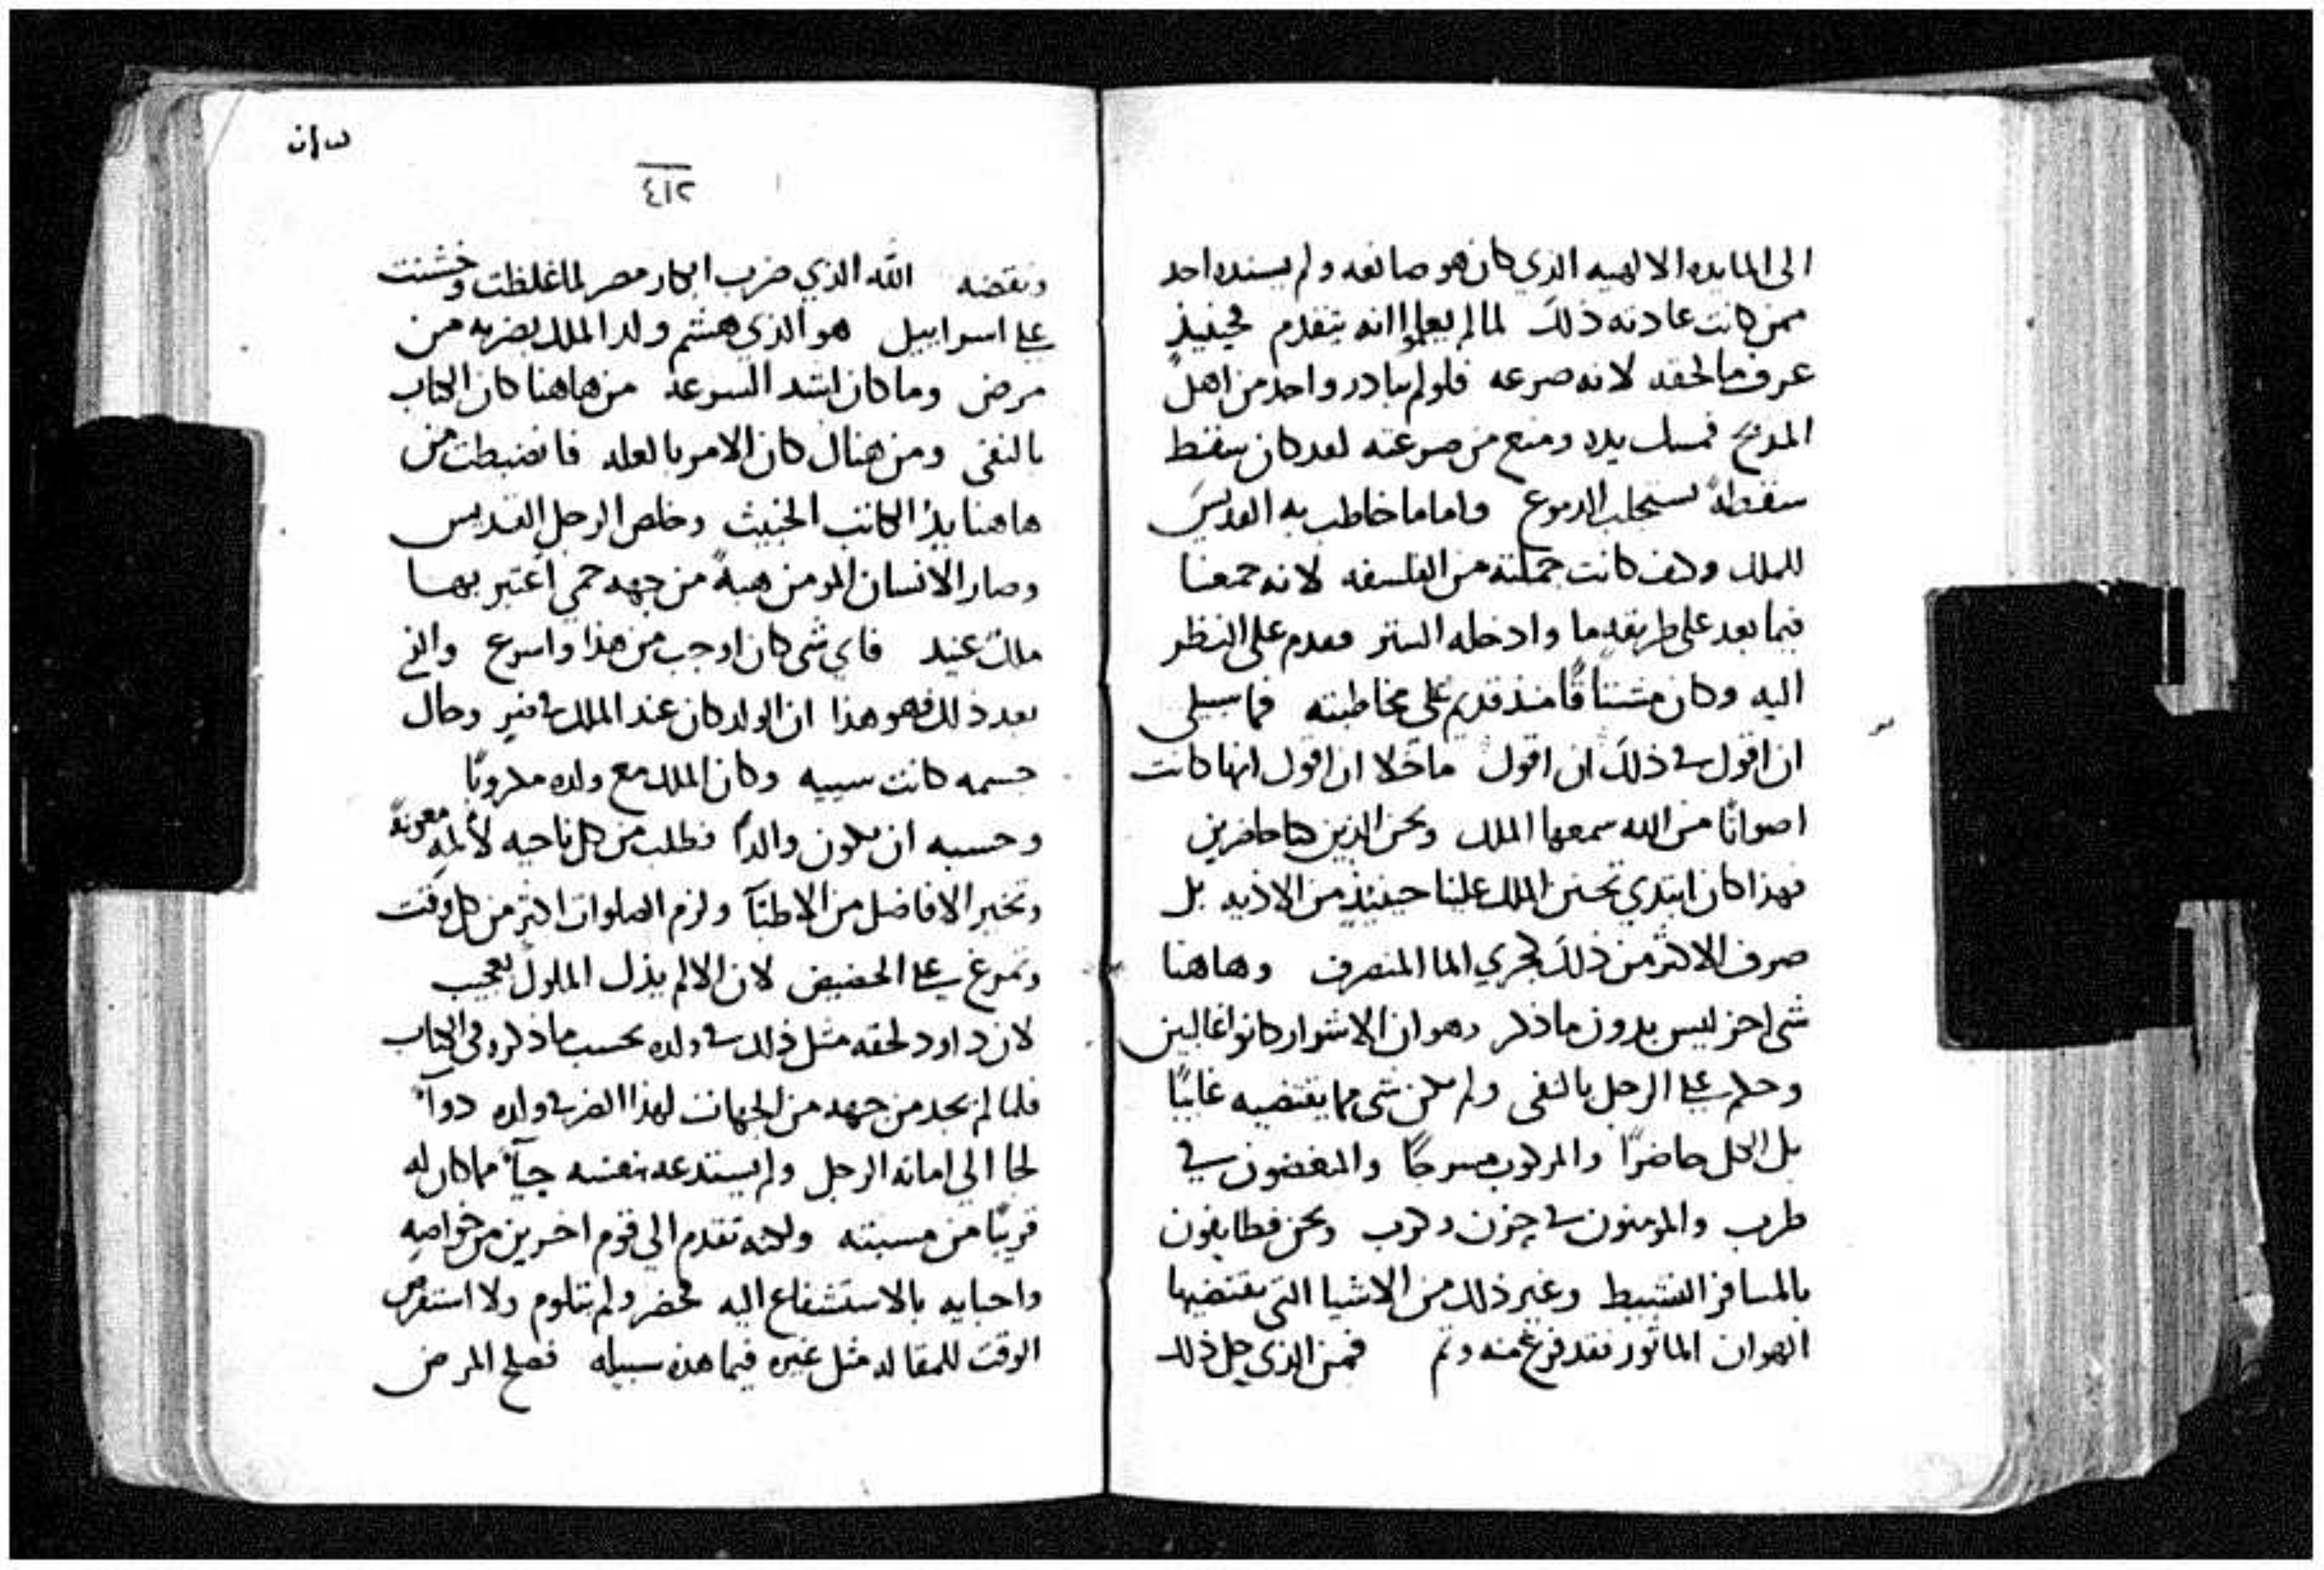 الى المايده الالهيه الذي كان هو صانعه ولم يسنده احد
ممن كانت عادته ذلك لما لم يعلموا انه يتقدم فحينيذٍ
عرف ما لحقه لانه صرعه فلولم يبادر واحد من اهل
المذبح فمسك يده ومنع من صرعته لقد كان سقط
سقطةً تستجلب الدموع واما ما خاطب به القديس
للملك وكيف كانت جملته من الفلسفه لانه جمعنا
فيما بعد على طريقه ما وادخله الستر فقدم على النظر
اليه وكان مشتاقًا منذ قديم على مخاطبته فما سبيلي
ان اقول في ذلك ان اقول ما خلا ان اقول انها كانت
اصواتًا من الله سمعها الملك ونحن الذين كنا حاضرين
فهذا كان ابتدي تحنن الملك علينا حينيذٍ من الاذيه بل
صرف الاكثر من ذلك كجري الما المنصرف وهاهنا
شي اخر ليس بدون ما ذكر وهو ان الاشرار كانوا غالبين
وحكم على الرجل بالنفي ولم يكن شي مما يقتضيه غايبًا
بل الكل حاضرًا والمركوب مسرجًا والمبغضون في
طرب والمومنون في حزن وكرب ونحن فطايفون
بالمسافر النشيط وغير ذلك من الاشيا التي يقتضيها
الهوان الماثور فقد فرغ منه وتم فمن الذي حل ذلك
٤١٢
ونقضه الله الذي ضرب ابكار مصر لما غلظت وخشنت
على اسراييل هو الذي هشم ولد الملك بضربه من
مرض وما كان اشد السرعه من هاهنا كان الكتاب
بالنفي ومن هناك كان الامر بالعله فانضبطت من
هاهنا يد الكاتب الخبيث وخلص الرجل القديس
وصار الانسان المومن هبةً من جهه حمي اعتبر بها
ملك عنيد فاي شي كان اوجب من هذا واسرع والذي
بعد ذلك فهو هذا ان الولد كان عند الملك في ضر وحال
جسمه كانت سييه وكان الملك مع ولده مكروبًا
وحسبه ان يكون والدًا فطلب من كل ناحيه لالمه معونةً
وتخير الافاضل من الاطبآ ولزم الصلوات اكثر من كل وقت
وتمرغ على الحضيض لان الالم يذل الملوك بعجيب
لان داود لحقه مثل ذلك في ولده بحسب ما ذكر في الكتاب
فلما لم يجد من جهه من الجهات لهذا الضر في ولده دوآً
لجا الي امانه الرجل ولم يستدعه بنفسه حيآً مما كان له
قريبًا من مسبته ولكنه تقدم الي قوم اخرين من خواصه
واحبايه بالاستشفاع اليه فحضر ولم يتلوم ولا استفرص
الوقت للمقاله مثل غيره فيما هذه سبيله فصلح المرض